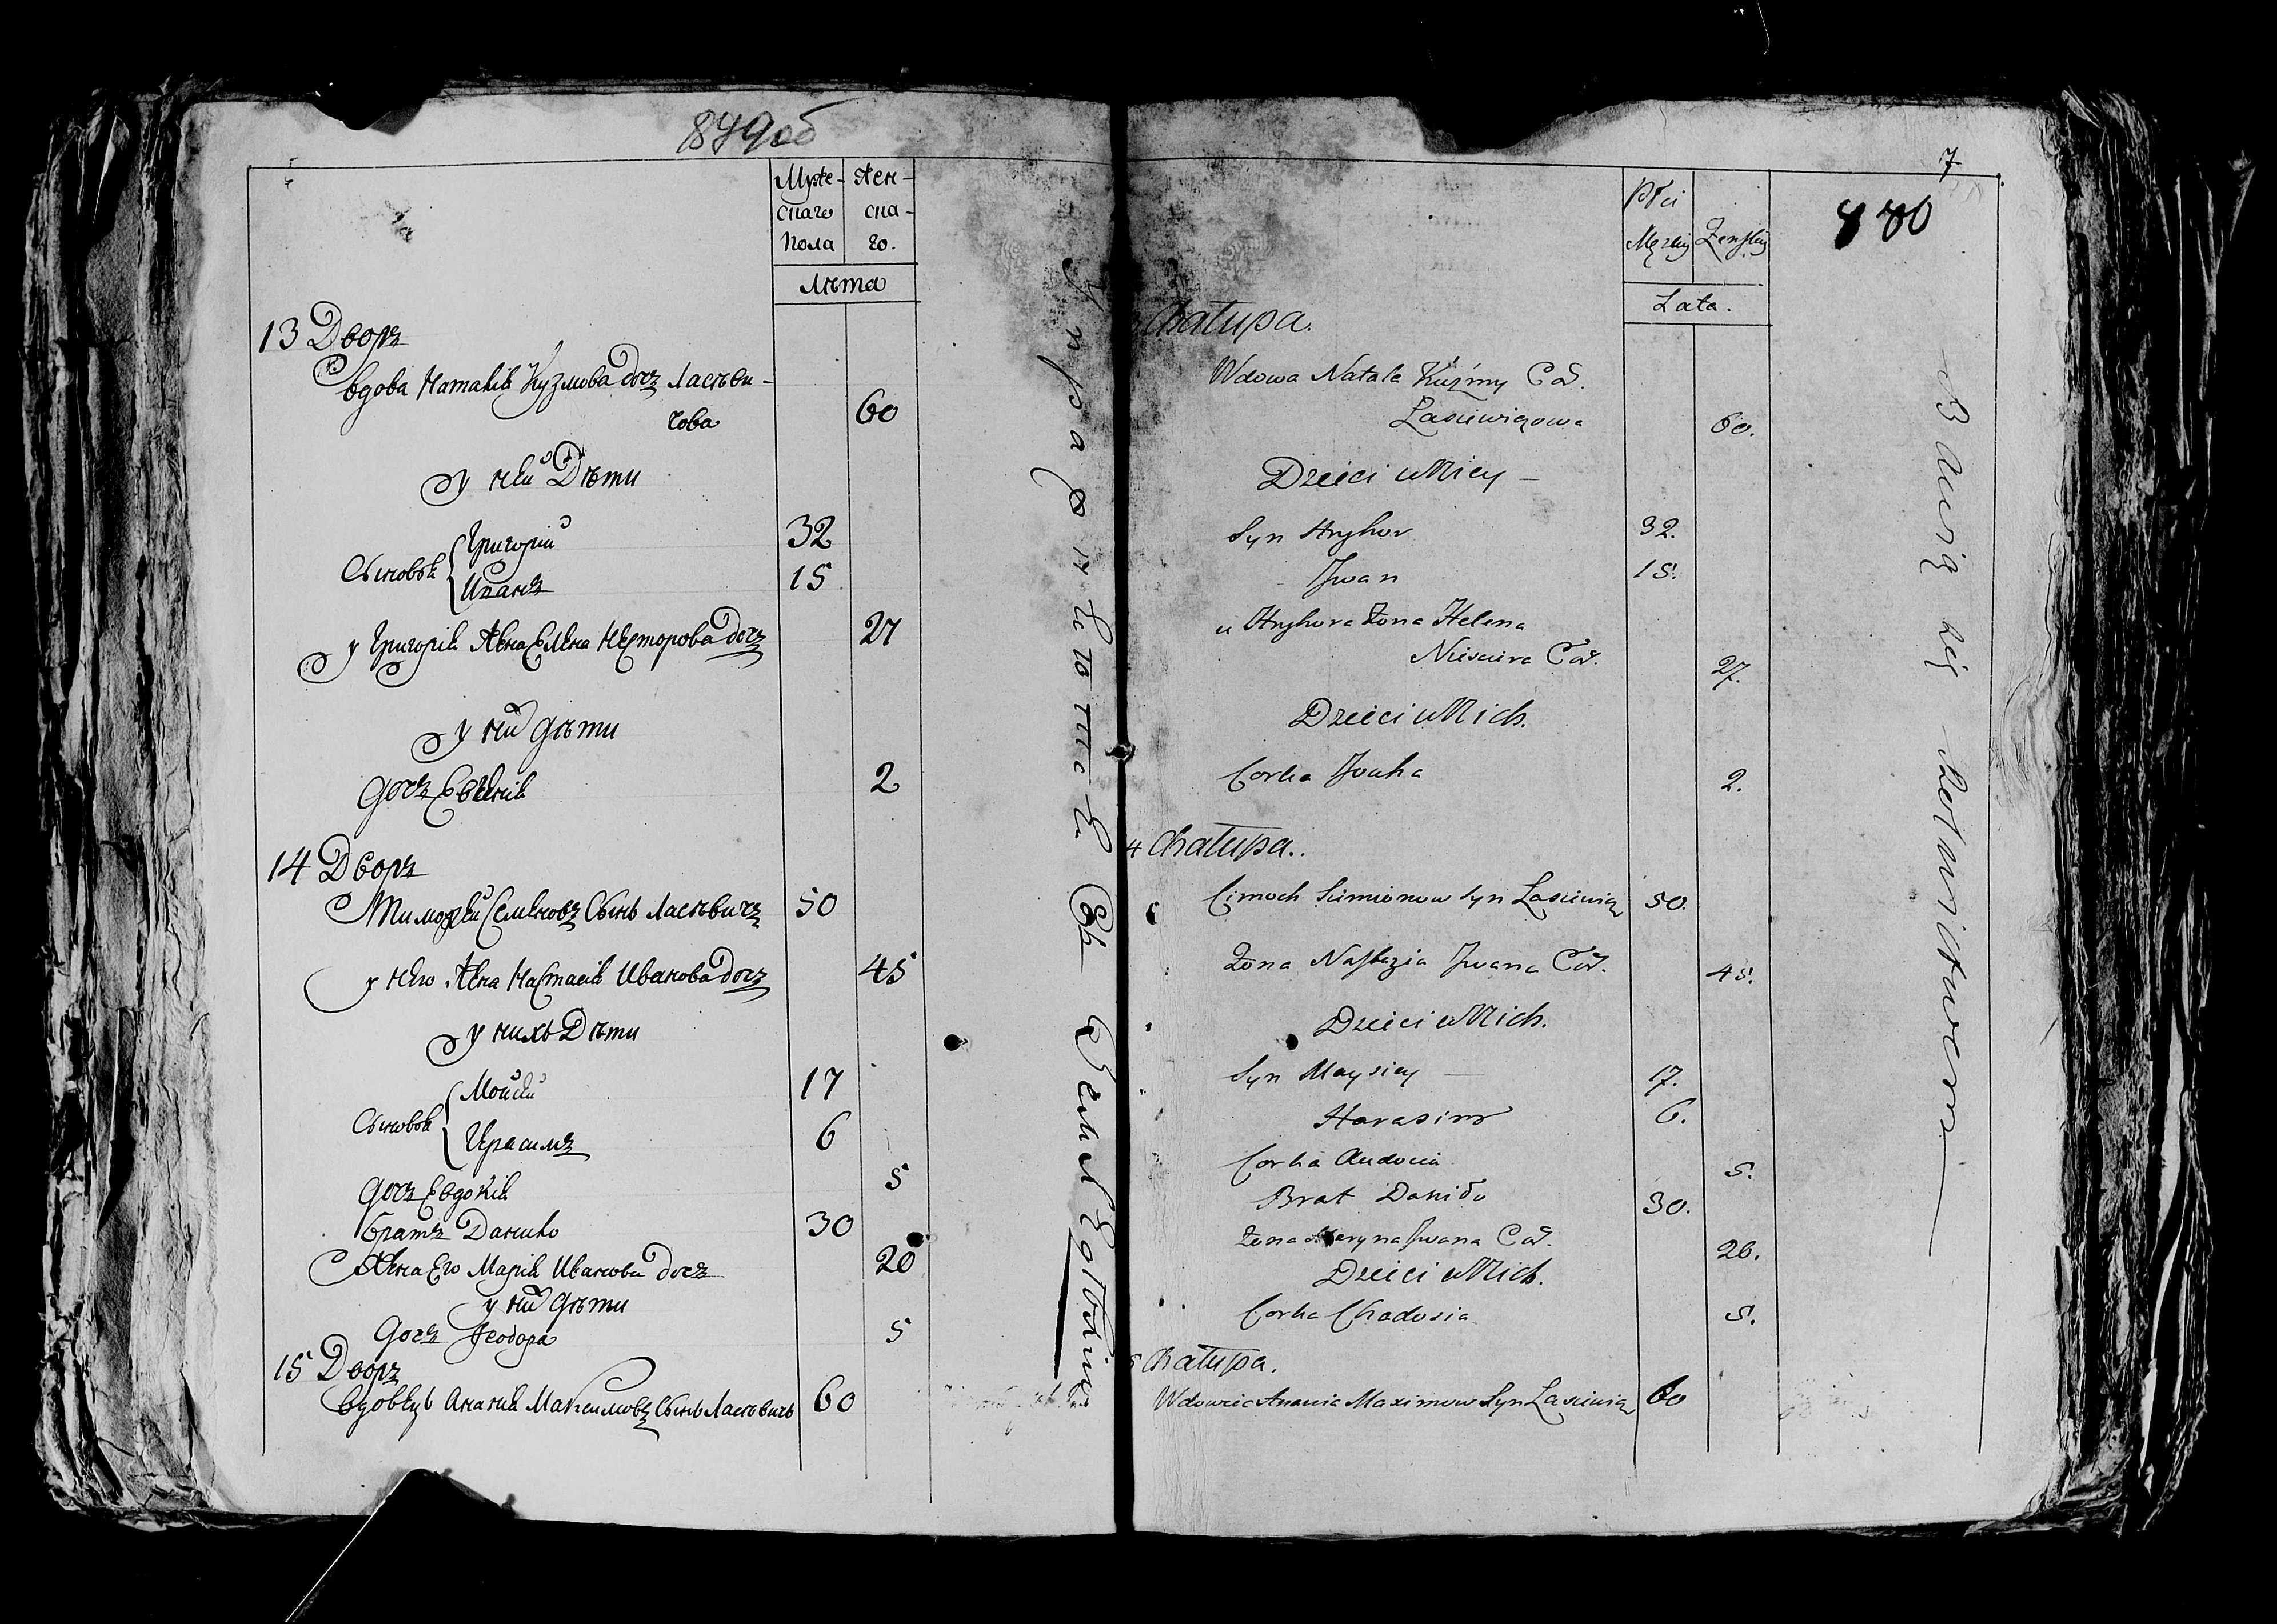 879об
Муже- Жен-
скаго ска-
Пола го.
Лѣта
13 Дворъ
вдова Наталія Кузмова дочъ Ласѣви-
чова 60
у ней Дѣти
Сыновья Григорій 32
Иванъ 15
у Григорія Жена Елена Несторова Дочъ 27
у ний дѣти
дочъ Евгенія 2
14 Дворъ
Тимофей Семеновъ Сынъ Ласѣвичъ 50
у него Жена Настасія Иванова Дочъ 45
у нихъ Дѣти
Сыновья Мойсей 17
Герасимъ 6
дочъ Евдокія 5
братъ Данило 30
Жена Его Марія Иванова Дочъ 20
у ний дѣти
дочъ Феодора 5
15 Дворъ
вдовецъ Ананій Максимовъ Сынъ Ласѣвичъ 60
7
880
Płci
Męzkiy Żeńskiy
Lata.
Chałupa.
Wdowa Natala Kuźmy Cór.
Lasiewiczowa 60.
Dzieci u Niey —
Syn Hryhor 32.
Jwan 15.
u Hryhora Żona Helena
Niesciora Cór. 27.
Dzieci u Nich.
Corka Jouha 2.
4 Chałupa..
Cimoch Simionow Syn Lasiewicz 50.
Żona Nastazia Jwana Cór. 45.
Dzieci u Nich.
Syn Maysiey — 17.
Harasim 6.
Corka Audocia 5.
Brat Daniło 30.
Żona Maryna Jwana Cór. 20.
Dzieci u Nich.
Corka Chadosia 5.
5 Chałupa.
Wdowiec Anania Maximow Syn Lasiewicz 60